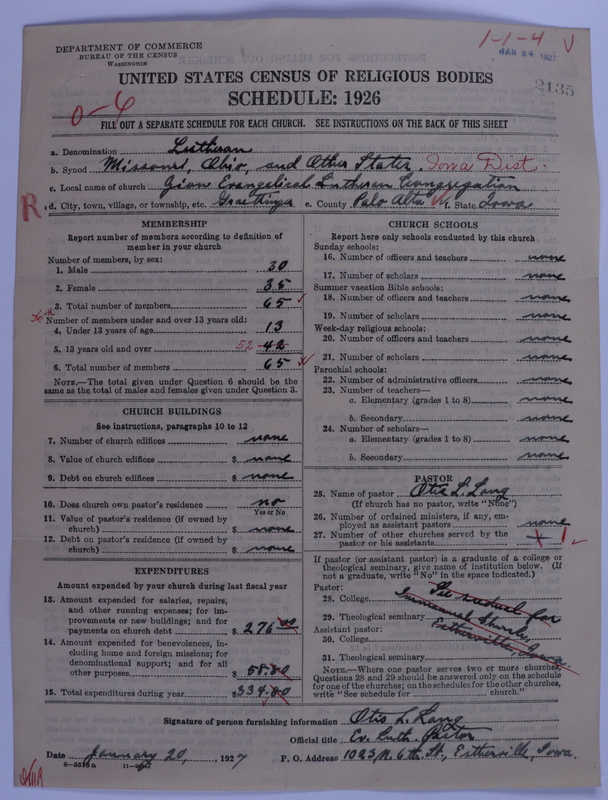 DEPARTMENT OF COMMERCE
BUREAU OF THE CENSUS
WASHINGTON
1-1-4 V
JAN 24 1927
2135
UNITED STATES CENSUS OF RELIGIOUS BODIES
SCHEDULE: 1926
0-6
FILL OUT A SEPARATE SCHEDULE FOR EACH CHURCH. SEE INSTRUCTIONS ON THE BACK OF THIS SHEET
a. Denomination Lutheran
b. Synod Missouri, Ohio, and Other States. Iowa Dist.
c. Local name of church Zion Evangelical Lutheran Congregation
R d. City, town, village, or township, etc. Graettinger e. County Palo Alto f. State Iowa
MEMBERSHIP
Report number of members according to definition of
member in your church
Number of members, by sex:
1. Male 30
2. Female 35
3. Total number of members 65
Number of members under and over 13 years old:
4. Under 13 years of age 13
5. 13 years old and over 52 42
6. Total number of members 65
NOTE.—The total given under Question 6 should be the
same as the total of males and females given under Question 3.
CHURCH BUILDINGS
See instructions, paragraphs 10 to 12
7. Number of church edifices none
8. Value of church edifices $ none
9. Debt on church edifices $ none
10. Does church own pastor's residence no
Yes or No
11. Value of pastor's residence (if owned by
church) $ none
12. Debt on pastor's residence (if owned by
church) $ none
EXPENDITURES
Amount expended by your church during last fiscal year
13. Amount expended for salaries, repairs,
and other running expenses; for im-
provements or new buildings; and for
payments on church debt $ 276.00
14. Amount expended for benevolences, in-
cluding home and foreign missions; for
denominational support; and for all
other purposes $ 58.00
15. Total expenditures during year $ 334.00
CHURCH SCHOOLS
Report here only schools conducted by this church
Sunday schools:
16. Number of officers and teachers none
17. Number of scholars none
Summer vacation Bible schools:
18. Number of officers and teachers none
19. Number of scholars none
Week-day religious schools:
20. Number of officers and teachers none
21. Number of scholars none
Parochial schools:
22. Number of administrative officers none
23. Number of teachers—
a. Elementary (grades 1 to 8) none
b. Secondary none
24. Number of scholars—
a. Elementary (grades 1 to 8) none
b. Secondary none
PASTOR
25. Name of pastor Otis L. Lang
(If church has no pastor, write "None")
26. Number of ordained ministers, if any, em-
ployed as assistant pastors none
27. Number of other churches served by the
pastor or his assistants 1
If pastor (or assistant pastor) is a graduate of a college or
theological seminary, give name of institution below. (If
not a graduate, write "No" in the space indicated.)
Pastor:
28. College See schedule for
29. Theological seminary Immanuel Church,
Assistant pastor: Estherville, Iowa
30. College
31. Theological seminary
NOTE.—Where one pastor serves two or more churches,
Questions 28 and 29 should be answered only on the schedule
for one of the churches; on the schedules for the other churches,
write "See schedule for church."
Signature of person furnishing information Otis L. Lang
Official title Ev. Luth. Pastor
Date January 20, 1927 P. O. Address 1023 N. 6th St., Estherville, Iowa.